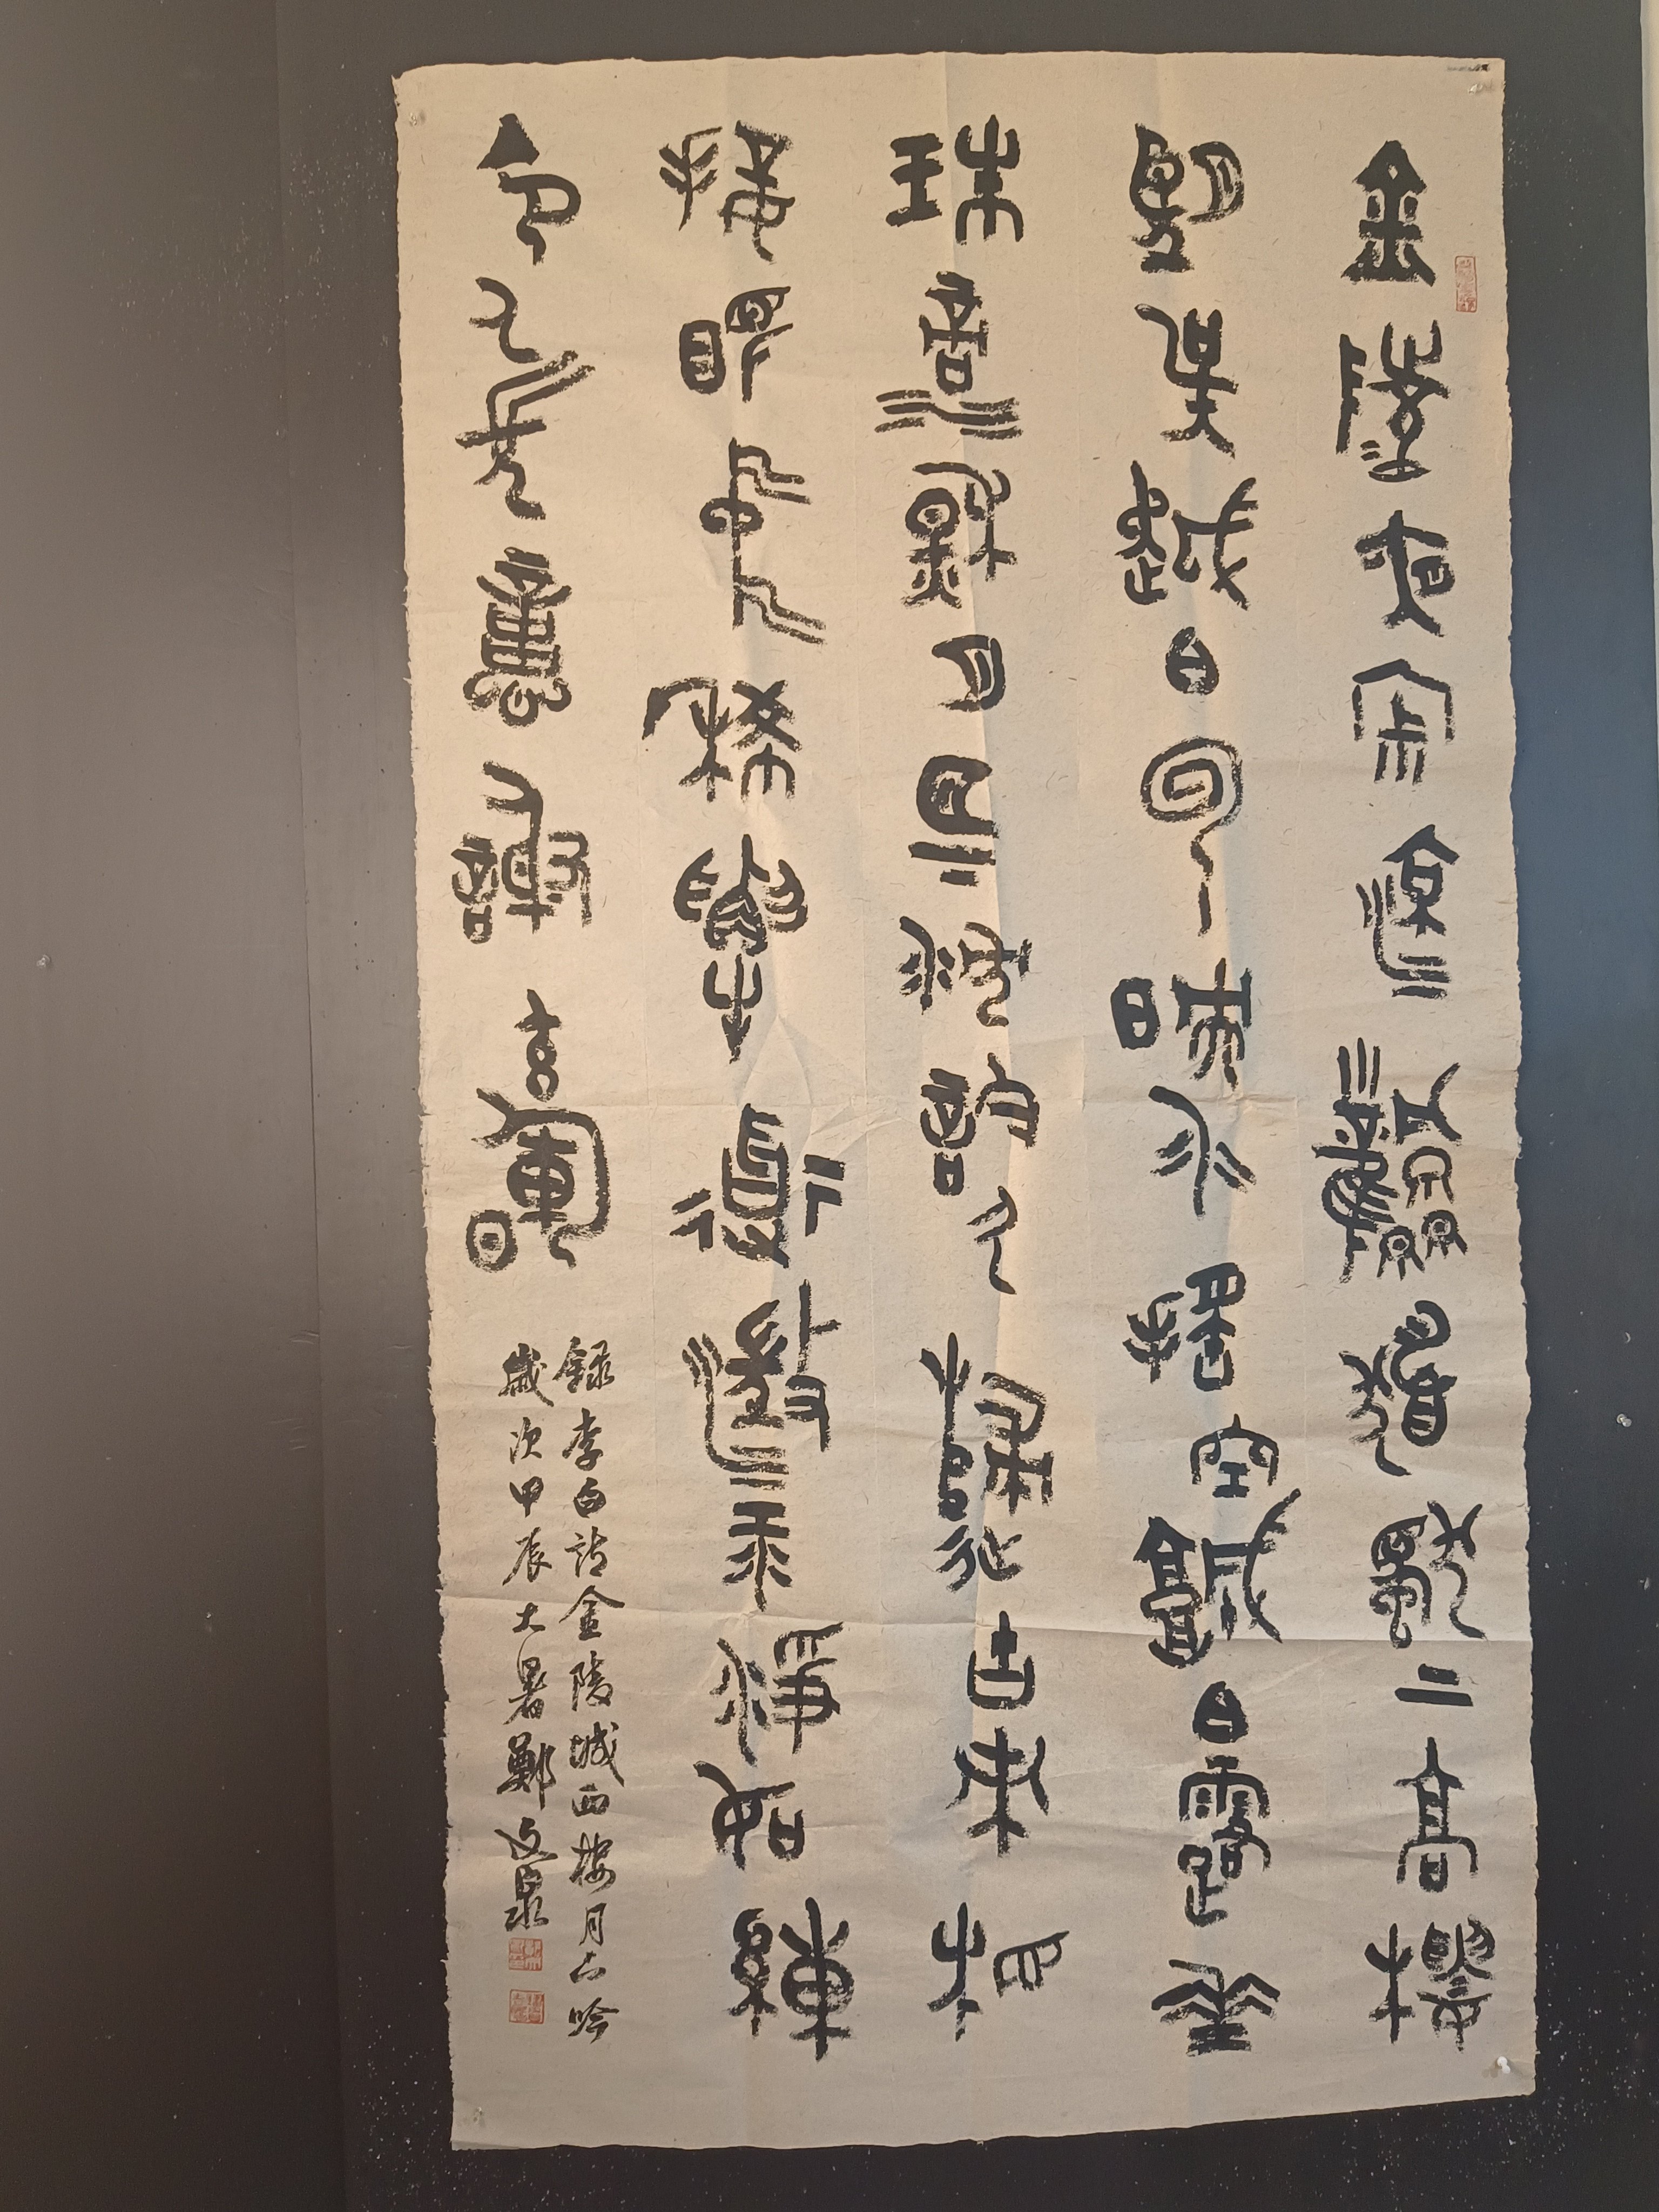 金陵夜寂涼風發獨上高樓
望吳越白雲映水搖空城白露垂
珠滴秋月月下沉吟久歸古來相
接眼中稀解道澄江淨如練
令人長憶謝玄暉
錄李白詩金陵城西樓月下吟
歲次甲辰大暑鄭文泉